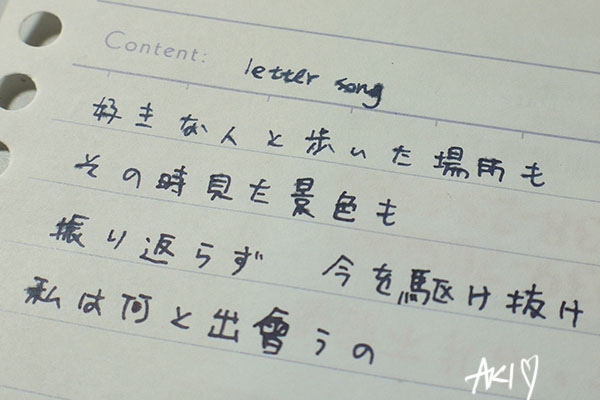 Content: letter song
好きな人と歩いた場所も
その時見た景色も
振り返らず 今を駆け抜け
私は何と出會うの
AKI♡